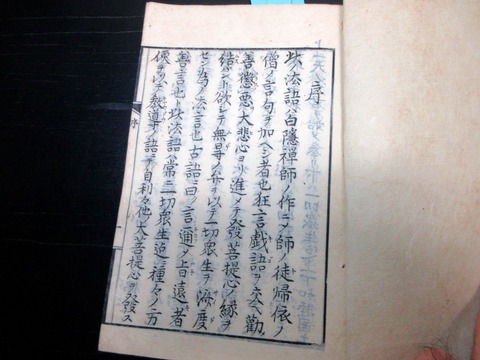 序
此法語ハ白隠禅師ノ作ニメ師ノ徒帰依ノ
僧ノ言句ヲ加ヘシ者也狂言戯語ヲ交ヘ勧
善懲悪大悲心ヨリ進メテ發菩提心ノ縁ヲ
結バント欲シテ無㝵ノ弁ヲ以テ一切衆生ヲ済度
セシ為ノ法言也古語曰ク言邇メ旨遠キ者
善言也ト此法語ハ常ニ一切衆生迄種々ノ方
便ヲ以テ教導ノ語ニテ自利々他大菩提心ヲ發ス
序